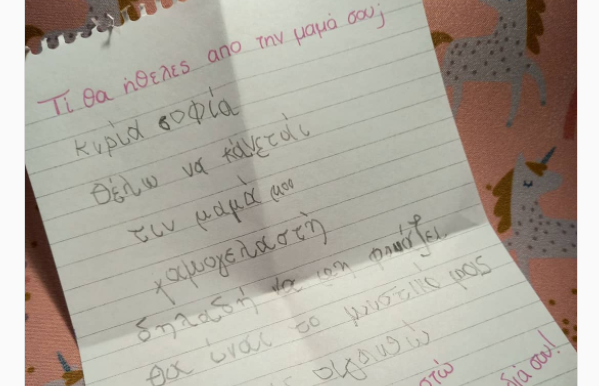 Τί θα ήθελες απο την μαμά σου;
κυρία σοφία
θέλω να κάνεται
τιν μαμά μου
χαμογελαστή
δηλαδή να μη φωνάζει
θα ίνας το μυστικό μας
διά σου!